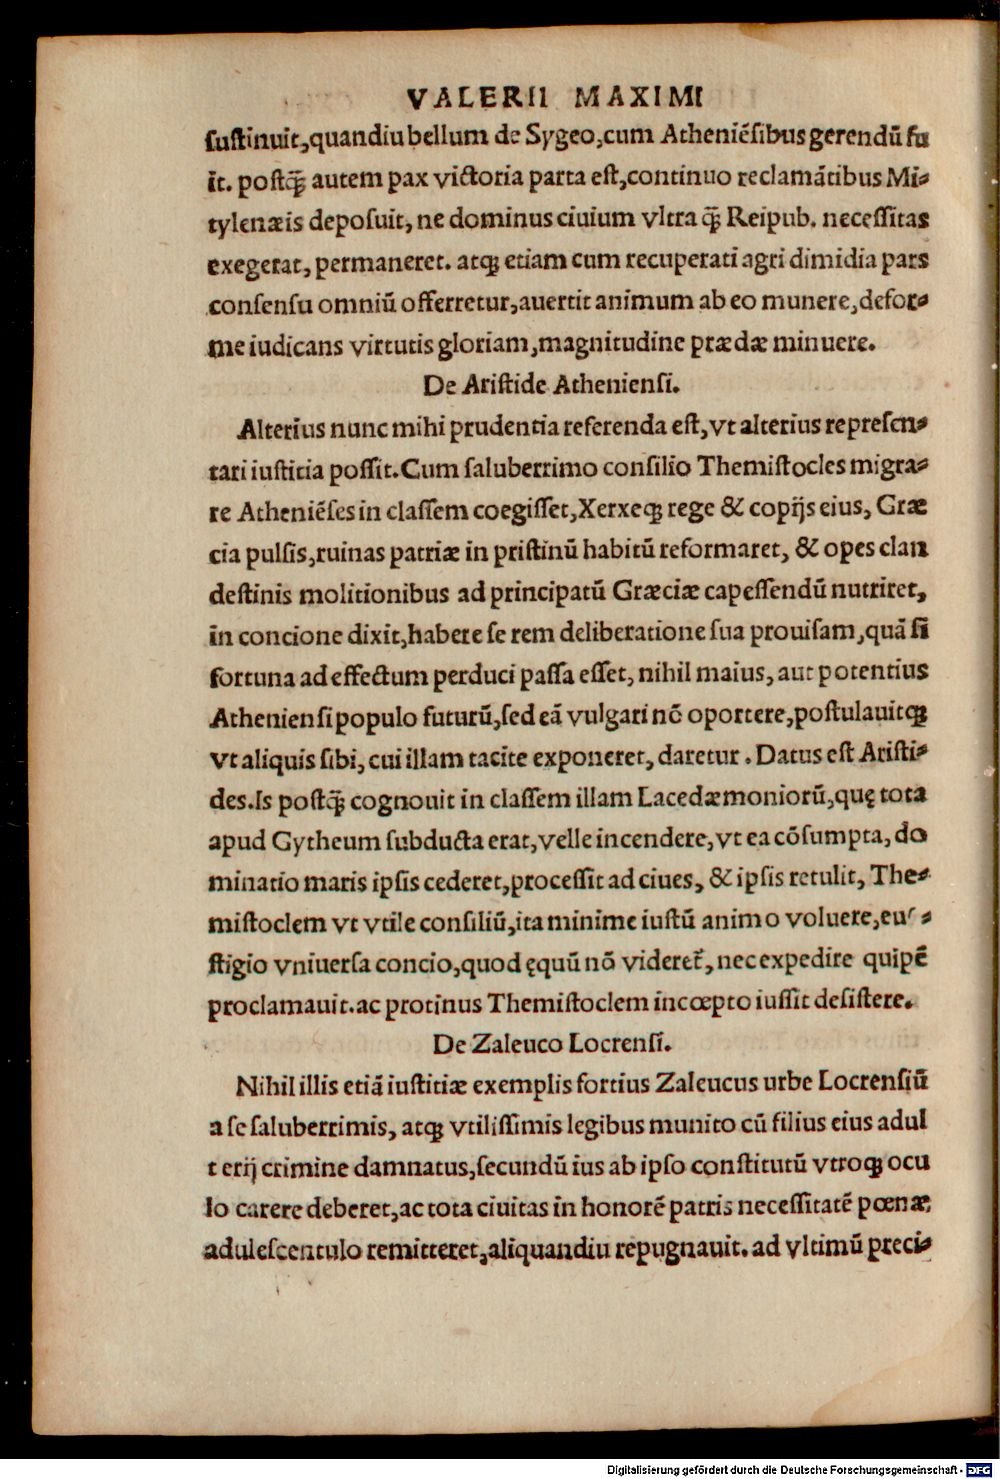 VALERII MAXIMI
sustinuit,quandiu bellum de Sygeo,cum Atheniēsibus gerendū fu
it. postq̃ autem pax victoria parta est,continuo reclamātibus Mi-
tylenæis deposuit, ne dominus ciuium vltra q̃ Reipub. necessitas
exegerat, permaneret. atq; etiam cum recuperati agri dimidia pars
consensu omniū offerretur,auertit animum ab eo munere,defor-
me iudicans virtutis gloriam,magnitudine prædæ minuere.
De Aristide Atheniensi.
Alterius nunc mihi prudentia referenda est,vt alterius represen-
tari iustitia possit.Cum saluberrimo consilio Themistocles migra-
re Atheniēses in classem coegisset,Xerxeq; rege & copijs eius, Græ
cia pulsis,ruinas patriæ in pristinū habitū reformaret, & opes clan
destinis molitionibus ad principatū Græciæ capessendū nutriret,
in concione dixit,habere se rem deliberatione sua prouisam,quā si
fortuna ad effectum perduci passa esset, nihil maius, aut potentius
Atheniensi populo futurū,sed eā vulgari nō oportere,postulauitq;
vt aliquis sibi, cui illam tacite exponeret, daretur. Datus est Aristi-
des.Is postq̃ cognouit in classem illam Lacedæmoniorū,quę tota
apud Gytheum subducta erat,velle incendere,vt ea cōsumpta, do
minatio maris ipsis cederet,processit ad ciues, & ipsis retulit, The-
mistoclem vt vtile consiliū,ita minime iustū animo voluere,eu -
stigio vniuersa concio,quod ęquū nō videret̃, nec expedire quipē
proclamauit.ac protinus Themistoclem incœpto iussit desistere.
De Zaleuco Locrensi.
Nihil illis etiā iustitiæ exemplis fortius Zaleucus urbe Locrensiū
a se saluberrimis, atq; vtilissimis legibus munito cū filius eius adul
terij crimine damnatus,secundū ius ab ipso constitutū vtroq; ocu
lo carere deberet,ac tota ciuitas in honorē patris necessitatē pœnæ
adulescentulo remitteret,aliquandiu repugnauit. ad vltimū preci-
Digitalisierung gefördert durch die Deutsche Forschungsgemeinschaft - DFG